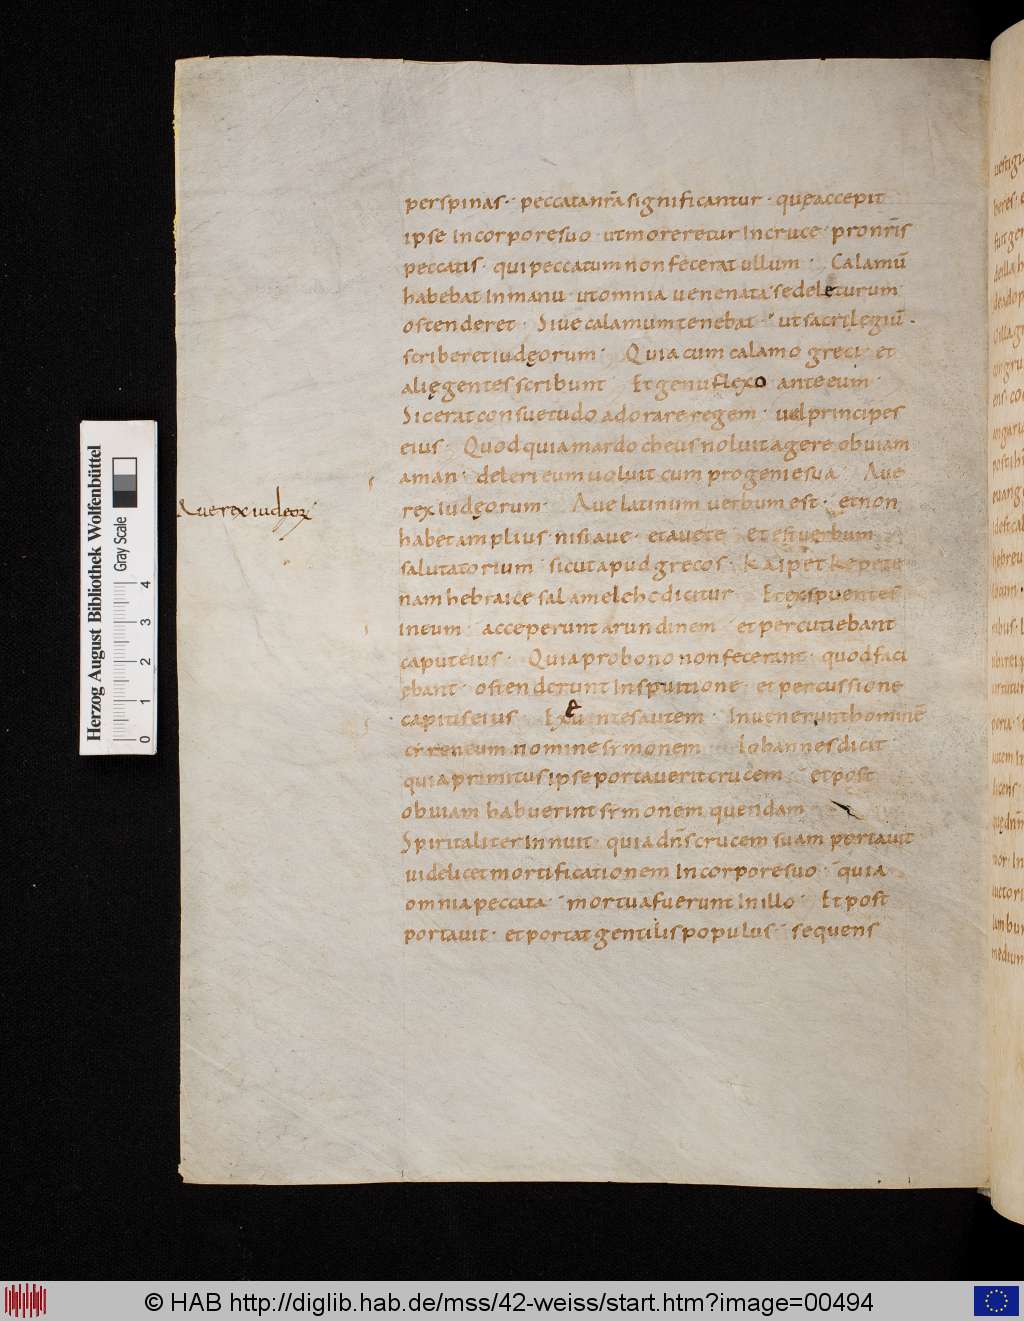 per spinas · peccata nr̄a significantur · quę accepit
ipse in corpore suo · ut moreretur in cruce · pro nr̄is
peccatis · qui peccatum non fecerat ullum · Calamū
habebat in manu · ut omnia uenenata se deleturum
ostenderet · Siue calamum tenebat · ut sacrilegiū ·
scriberet iudęorum · Quia cum calamo greci · et
alię gentes scribunt Et genu flexo ante eum ·
Sic erat consuetudo adorare regem · uel principes
eius · Quod quia mardocheus noluit agere obuiam
aman · deleri eum uoluit cum progenie sua · Aue
rex iudęorum · Aue latinum uerbum est · et non
habet amplius · nisi aue · et auete Et est uerbum
salutatorium sicut apud grecos · kaipet kepete
nam hebraice salamelchc dicitur Et exspuentes
in eum · acceperunt arundinem et percutiebant
caput eius · Quia pro bono non fecerant · quod faci
ebant · ostenderunt in sputione · et percussione
capitis eius · Exeuntes autem · Inuenerunt hominē
cir̄eneum nomine sr̄monem Iohannes dicit
quia primitus ipse portauerit crucem et post
obuiam habuerint sr̄monem quendam
Spiritaliter innuit · quia dn̄s crucem suam portauit
uidelicet mortificationem in corpore suo · quia
omnia peccata · mortua fuerunt in illo · Et post
portauit · et portat gentilis populus sequens
Aue rex iudęoꝝ
Herzog August Bibliothek Wolfenbüttel
Gray Scale
0 1 2 3 4
© HAB http://diglib.hab.de/mss/42-weiss/start.htm?image=00494